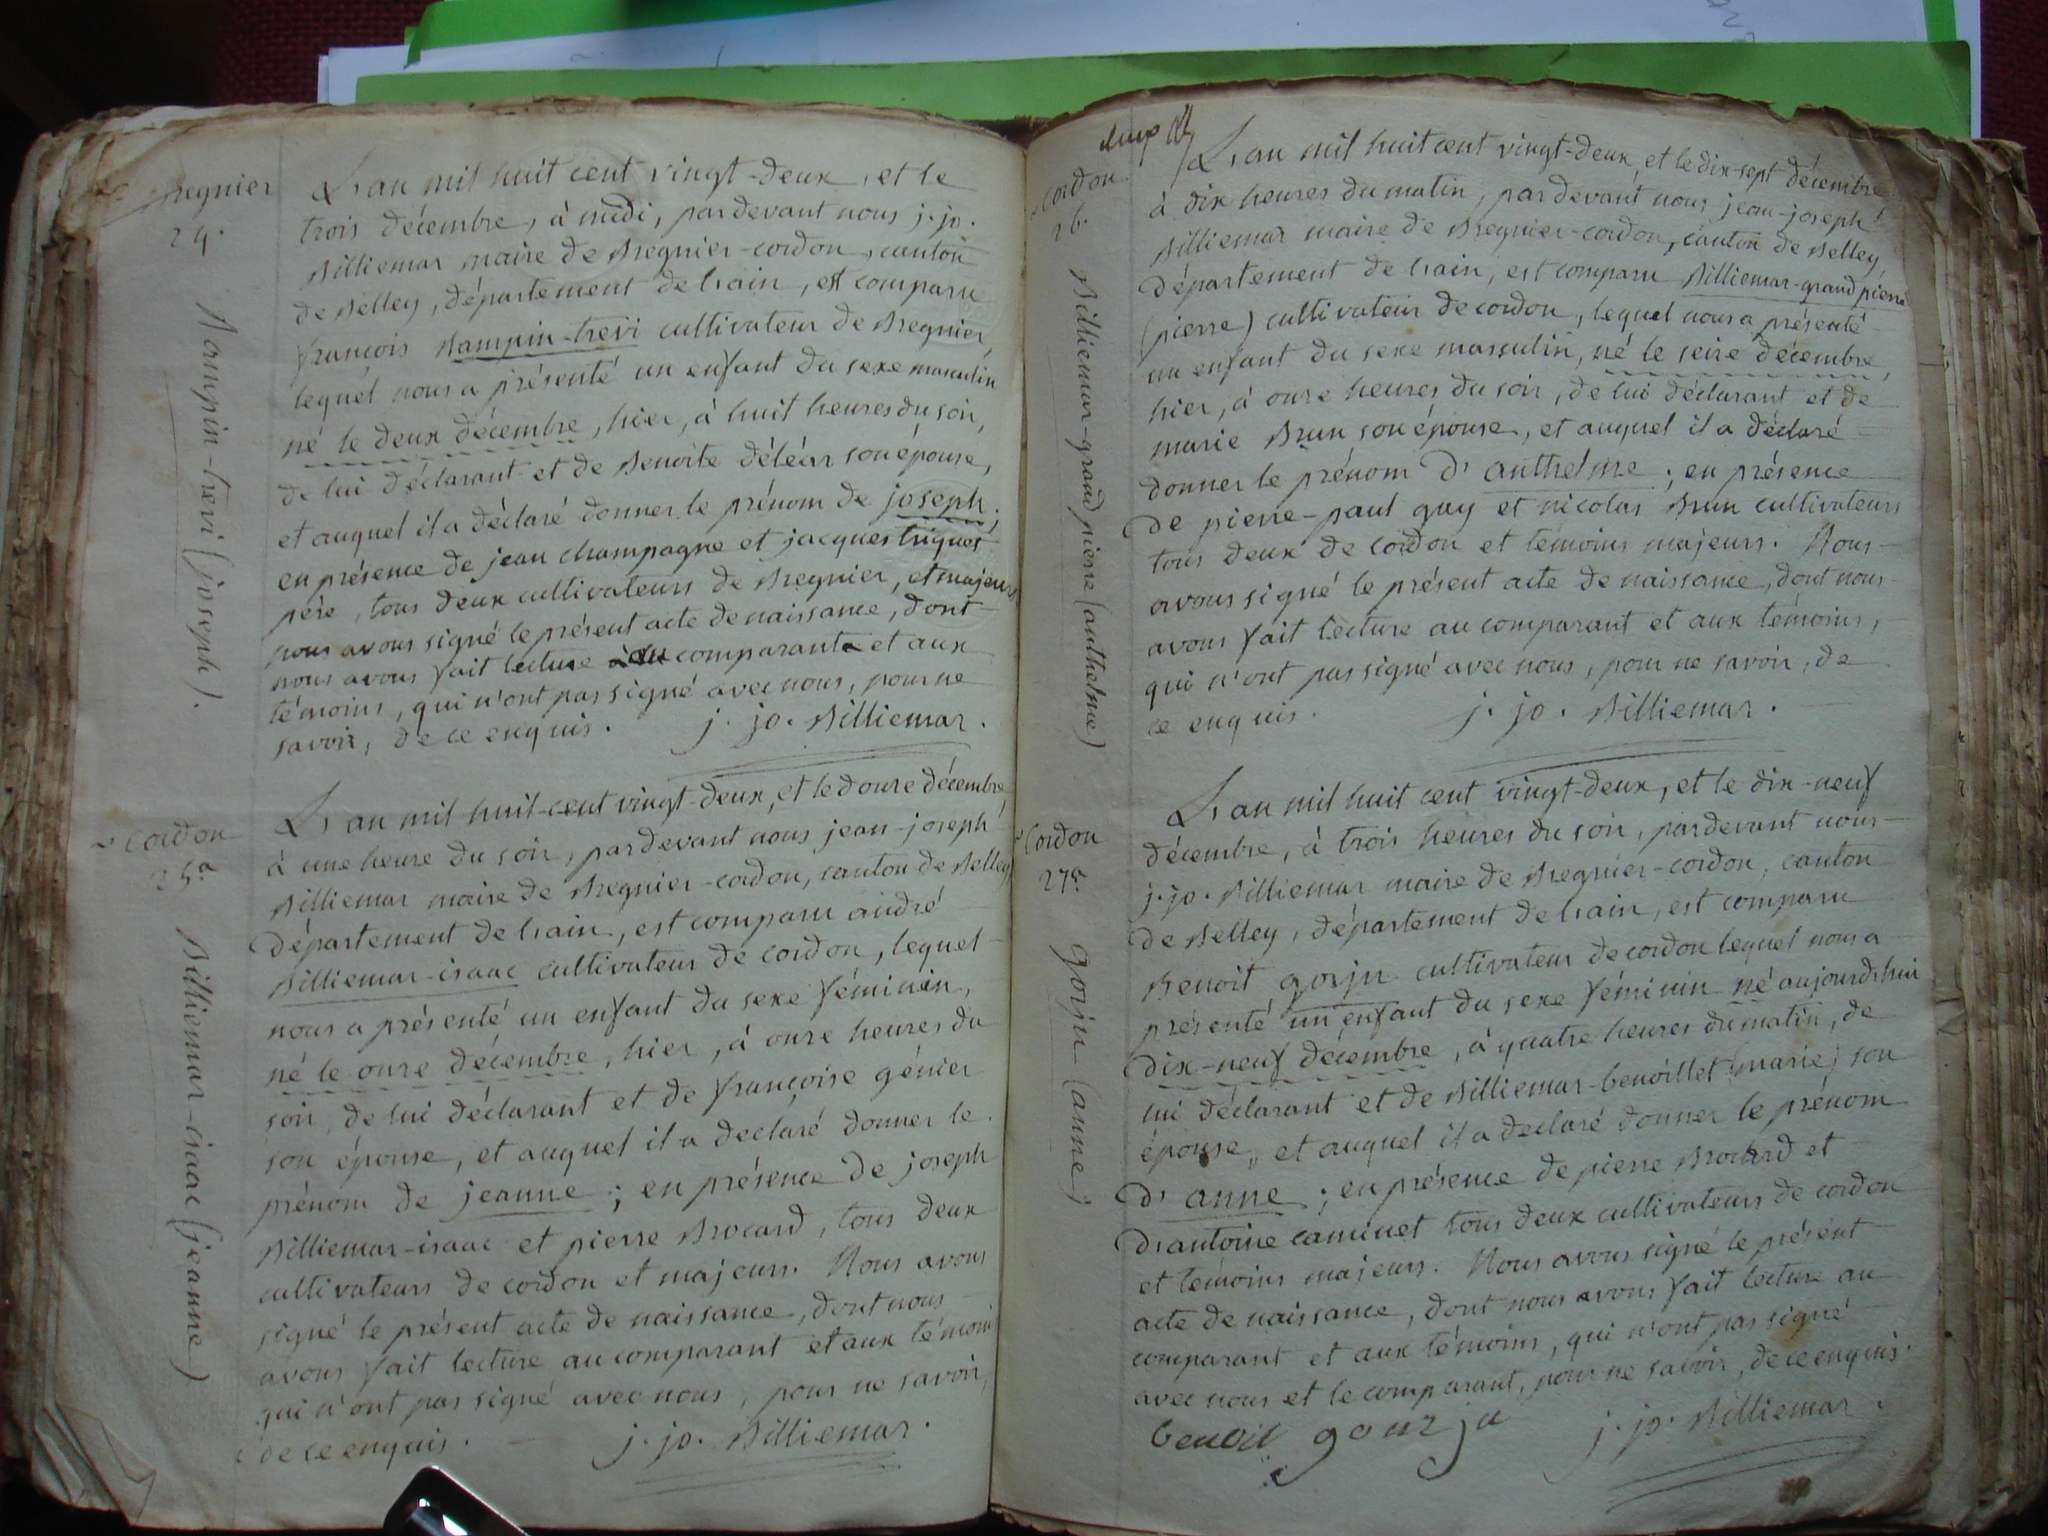 Bregnier
24.
Rampin-trevi (joseph).
L'an mil huit cent vingt-deux, et le
trois décembre, à midi, pardevant nous j. jo.
Billiemar maire de Bregnier-cordon, canton
de Belley, département de l'ain, est comparu
françois Rampin-trevi cultivateur de Bregnier,
lequel nous a présenté un enfant du sexe masculin
né le deux décembre, hier, à huit heures du soir,
de lui déclarant et de Benoite déléar son épouse,
et auquel il a déclaré donner le prénom de joseph;
en présence de jean champagne et jacques triquet
père, tous deux cultivateurs de Bregnier, et majeurs
nous avons signé le présent acte de naissance, dont
nous avons fait lecture au comparant et aux
témoins, qui n'ont pas signé avec nous, pour ne
savoir, de ce enquis. j. jo. Billiemar.
cordon
25e
Billiemar-isaac (jeanne)
L'an mil huit-cent vingt-deux, et le douze décembre,
à une heure du soir, pardevant nous jean-joseph
Billiemar maire de Bregnier-cordon, canton de Belley
département de l'ain, est comparu andré
Billiemar-isaac cultivateur de cordon, lequel
nous a présenté un enfant du sexe féminin,
né le onze décembre, hier, à onze heures du
soir, de lui déclarant et de françoise génier
son épouse, et auquel il a declaré donner le
prénom de jeanne; en présence de joseph
Billiemar-isaac et pierre Brocard, tous deux
cultivateurs de cordon et majeurs. Nous avons
signé le présent acte de naissance, dont nous
avons fait lecture au comparant et aux témoins
qui n'ont pas signé avec nous, pour ne savoir,
de ce enquis. j. jo. Billiemar.
cordon
26.
Billiemar-grand pierre (anthelme)
L'an mil huit cent vingt-deux, et le dix-sept décembre
à dix heures du matin, pardevant nous jean-joseph
Billiemar maire de Bregnier-cordon, canton de Belley,
département de l'ain, est comparu Billiemar-grand pierre
(pierre) cultivateur de cordon, lequel nous a présenté
un enfant du sexe masculin, né le seize décembre,
hier, à onze heures du soir, de lui déclarant et de
marie Brun son épouse, et auquel il a déclaré
donner le prénom d'anthelme; en présence
de pierre-paul guy et nicolas Brun cultivateurs
tous deux de cordon et témoins majeurs. Nous
avons signé le présent acte de naissance, dont nous
avons fait lecture au comparant et aux témoins,
qui n'ont pas signé avec nous, pour ne savoir, de
ce enquis. j. jo. Billiemar.
Cordon
27e.
gorju (anne)
L'an mil huit cent vingt-deux, et le dix-neuf
décembre, à trois heures du soir, pardevant nous
j. jo. Billiemar maire de Bregnier-cordon, canton
de Belley, département de l'ain, est comparu
Benoit gorju cultivateur de cordon lequel nous a
présenté un enfant du sexe féminin né aujourd'hui
dix-neuf décembre, à quatre heures du matin, de
lui déclarant et de Billiemar-benoillet (marie) son
épouse, et auquel il a declaré donner le prénom
d'anne; en présence de pierre Brocard et
d'antoine caminet tous deux cultivateurs de cordon
et témoins majeurs. Nous avons signé le présent
acte de naissance, dont nous avons fait lecture au
comparant et aux témoins, qui n'ont pas signé
avec nous et le comparant, pour ne savoir, de ce enquis.
benoit gourju j. jo. Billiemar.